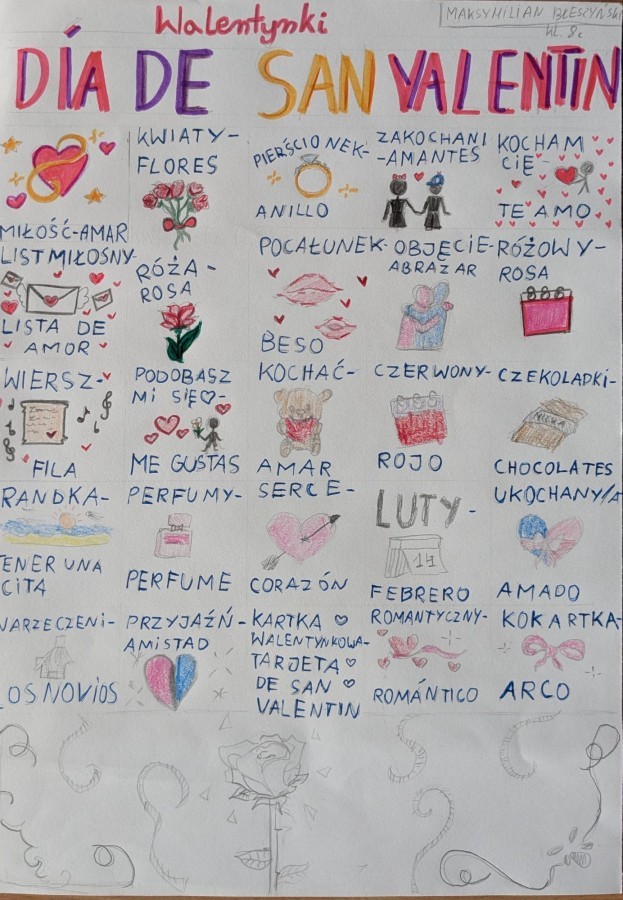 Walentynki
MAKSYMILIAN BŁESZYŃSKI
KL. 8c
DÍA DE SAN VALENTIN
MIŁOŚĆ-AMAR
KWIATY-
FLORES
PIERŚCIONEK-
ANILLO
ZAKOCHANI
-AMANTES
KOCHAM
CIĘ-
TE AMO
LIST MIŁOSNY-
LISTA DE
AMOR
RÓŻA-
ROSA
POCAŁUNEK-
BESO
OBJĘCIE-
ABRAZAR
RÓŻOWY-
ROSA
WIERSZ-
FILA
PODOBASZ
MI SIĘ-
ME GUSTAS
KOCHAĆ-
AMAR
CZERWONY-
ROJO
CZEKOLADKI-
CHOCOLATES
RANDKA-
TENER UNA
CITA
PERFUMY-
PERFUME
SERCE-
CORAZÓN
LUTY-
14
FEBRERO
UKOCHANY/A
AMADO
NARZECZENI-
LOS NOVIOS
PRZYJAŹŃ-
AMISTAD
KARTKA
WALENTYNKOWA-
TARJETA
DE SAN
VALENTIN
ROMANTYCZNY-
ROMÁNTICO
KOKARTKA-
ARCO